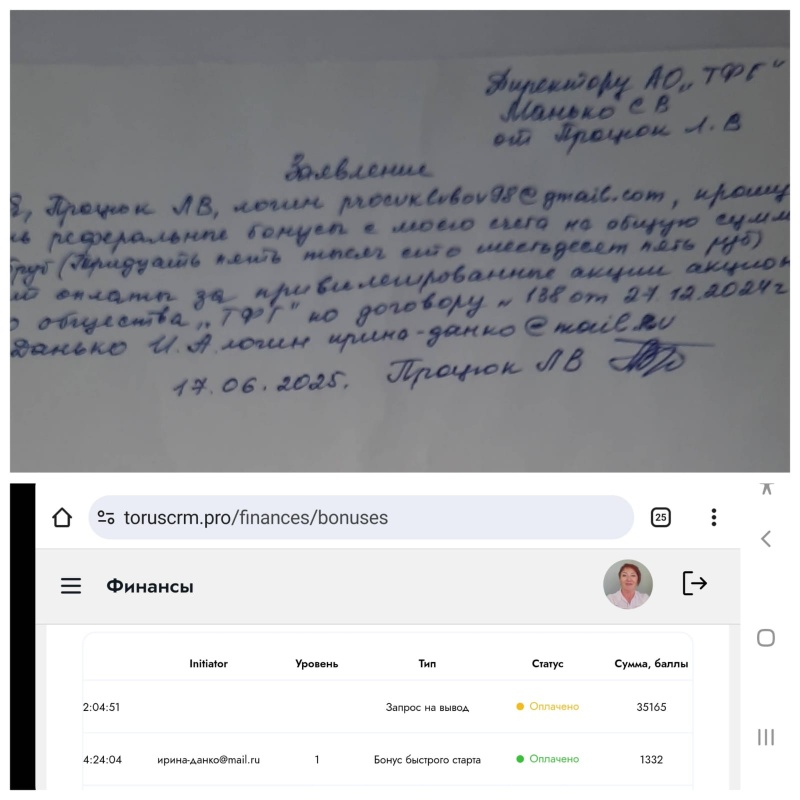 Директору АО „ТФГ"
Манько С В
от Процюк Л.В
Заявление
Я, Процюк ЛВ, логин procuklubov98@gmail.com, прошу
реферальные бонусы с моего счета на общую сумм
руб (Тридцать пять тысяч сто шестьдесят пять руб)
оплаты за привилегированные акции акцион
общества „ТФГ" по договору № 138 от 27.12.2024г
Данько И. А. логин ирина-данко@mail.ru
17.06.2025. Процюк ЛВ
toruscrm.pro/finances/bonuses
25
Финансы
Initiator Уровень Тип Статус Сумма, баллы
2:04:51 Запрос на вывод Оплачено 35165
4:24:04 ирина-данко@mail.ru 1 Бонус быстрого старта Оплачено 1332